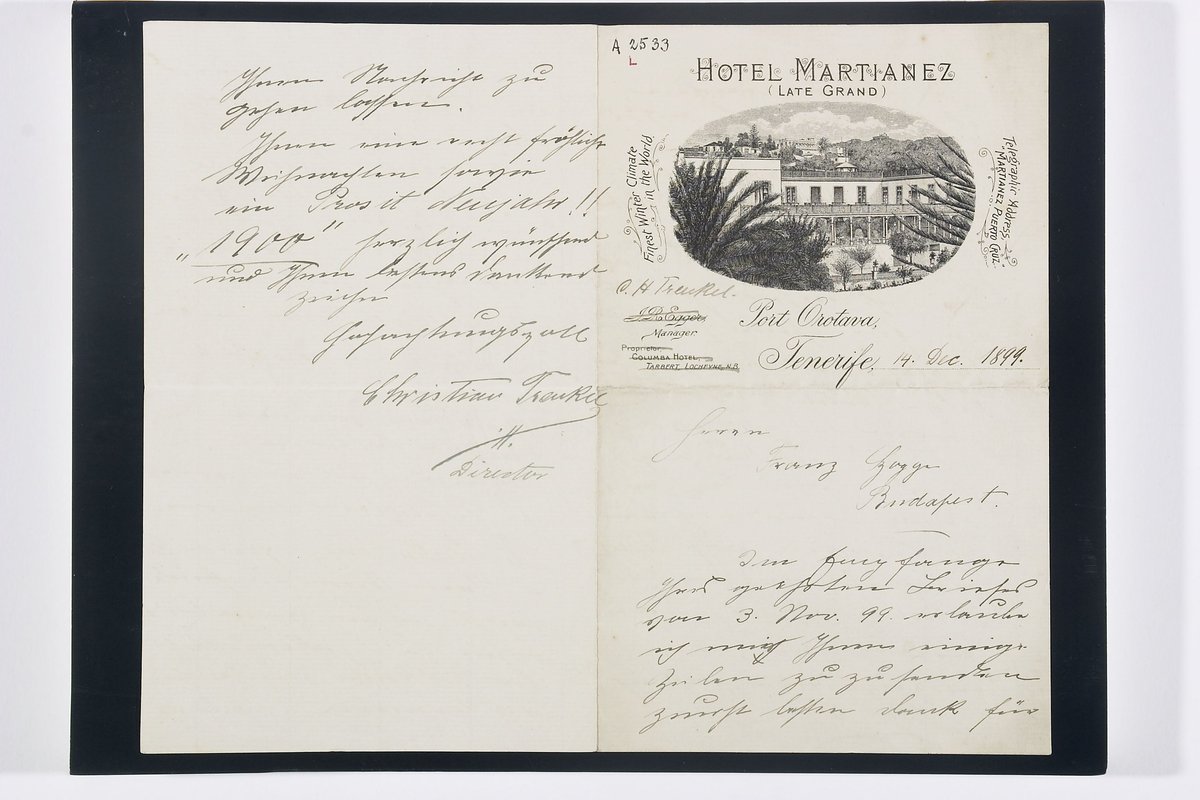 Ihnen Nachricht zu
gehen lassen.
Ihnen eine recht fröhliche
Weihnachten sowie
ein Prosit Neujahr!!
„1900" herzlich wünschend
und Ihnen bestens dankend
zeichne
Hochachtungsvoll
Christian Trenkel
Director
A 2533
L
HOTEL MARTIANEZ
(LATE GRAND)
Finest Winter Climate
in the World.
Telegraphic Address,
MARTIANEZ PUERTO CRUZ.
C. H Trenkel.
Manager.
Proprietor,
COLUMBA HOTEL,
TARBERT, LOCHFYNE, N.B.
Port Orotava,
Tenerife, 14. Dec. 1899.
Herrn
Franz
Budapest.
Im Empfange
Ihres geehrten Briefes
vom 3. Nov. 99. erlaube
ich mich Ihnen einige
Zeilen zu zu senden
zuerst besten Dank für